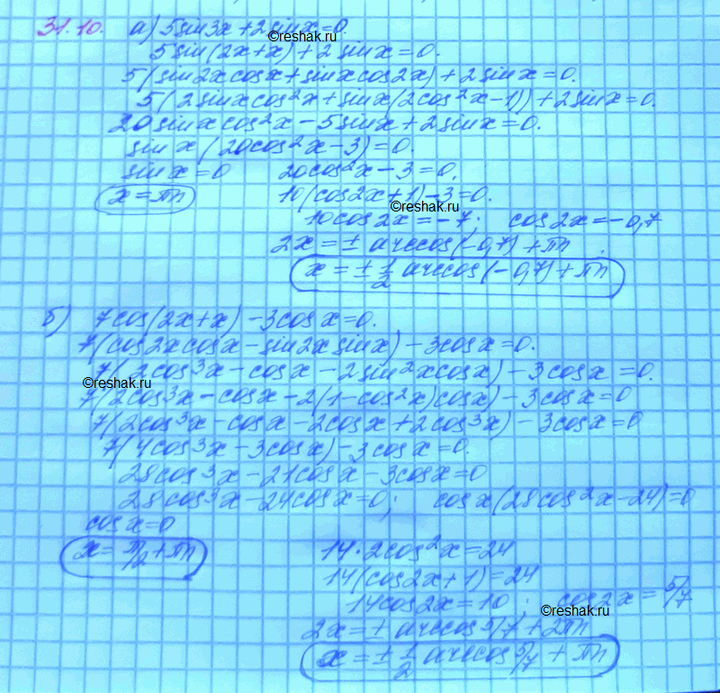 31.10. а) 5sin3x+2sinx=0.
©reshak.ru
5sin(2x+x)+2sinx=0.
5(sin2xcosx+sinxcos2x)+2sinx=0.
5(2sinxcos²x+sinx(2cos²x-1))+2sinx=0.
20sinxcos²x-5sinx+2sinx=0.
sinx(20cos²x-3)=0.
sinx=0 20cos²x-3=0.
x=πn 10(cos2x+1)-3=0.
©reshak.ru
10cos2x=-7. cos2x=-0,7
2x=±arccos(-0,7)+πn.
x=±1/2 arccos(-0,7)+πn
б) 7cos(2x+x)-3cosx=0.
7(cos2xcosx-sin2xsinx)-3cosx=0.
7(2cos³x-cosx-2sin²xcosx)-3cosx=0.
©reshak.ru
7(2cos³x-cosx-2(1-cos²x)cosx)-3cosx=0
7(2cos³x-cosx-2cosx+2cos³x)-3cosx=0
7(4cos³x-3cosx)-3cosx=0.
28cos³x-21cosx-3cosx=0
28cos³x-24cosx=0; cosx(28cos²x-24)=0
cosx=0
x=π/2+πn 14·2cos²x=24
14(cos2x+1)=24
14cos2x=10; cos2x=5/7
©reshak.ru
2x=±arccos5/7+2πn
x=±1/2 arccos5/7+πn